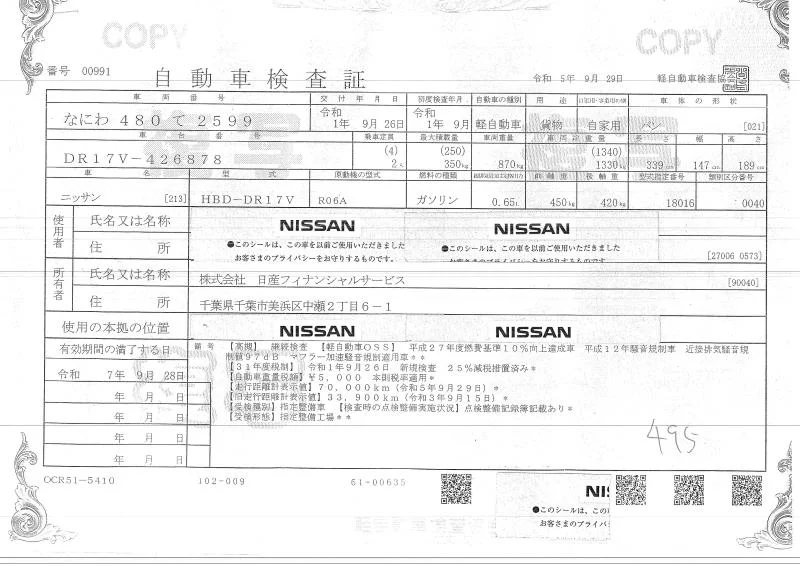 COPY
COPY
番号 00991
自動車検査証
令和 5年 9月 29日
軽自動車検査協会
車両番号 交付年月日 初度検査年月 自動車の種別 用途 自家用・事業用の別 車体の形状
なにわ 480 て 2599
令和 1年 9月 26日
令和 1年 9月
軽自動車 貨物 自家用 バン [021]
車台番号 乗車定員 最大積載量 車両重量 車両総重量 長さ 幅 高さ
DR17V-426878
(4) 2人
(250) 350kg
870kg
(1340) 1330kg
339cm 147cm 189cm
車名 型式 原動機の型式 燃料の種類 前軸重 後軸重 型式指定番号 類別区分番号
ニッサン [213] HBD-DR17V R06A ガソリン 0.65L 450kg 420kg 18016 0040
使用者
氏名又は名称
住所
NISSAN
●このシールは、この車を以前ご使用いただきました
お客さまのプライバシーをお守りするものです。
NISSAN
●このシールは、この車を以前ご使用いただきました
[27006 0573]
所有者
氏名又は名称 株式会社 日産フィナンシャルサービス [90040]
住所 千葉県千葉市美浜区中瀬2丁目6-1
使用の本拠の位置
NISSAN
NISSAN
有効期間の満了する日
令和 7年 9月 28日
年 月 日
年 月 日
年 月 日
年 月 日
備考 【高槻】 継続検査 【軽自動車OSS】 平成27年度燃費基準10%向上達成車 平成12年騒音規制車 近接排気騒音規
制値97dB マフラー加速騒音規制適用車**
【31年度税制】 令和1年9月26日 新規検査 25%減税措置済み*
【自動車重量税額】 ¥5,000 本則税率適用*
【走行距離計表示値】 70,000km (令和5年9月29日)*
【旧走行距離計表示値】 33,900km (令和3年9月15日)*
【受検種別】 指定整備車 【検査時の点検整備実施状況】 点検整備記録簿記載あり*
【受検形態】 指定整備工場**
495
OCR51-5410
102-009
61-00635
NI
●このシールは、この
お客さまのプライバシ